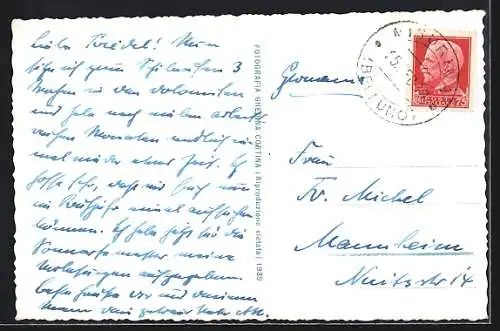 Liebe Friedel! Nun
bin ich zum Skilaufen 3
Wochen in den Dolomiten
und habe nach vielen arbeits
reichen Monaten endlich ein
mal wieder etwas Zeit. Ich
hoffe sehr, dass wir Euch nun
im Frühjahr einmal aufsuchen
können. Ich habe jetzt für die
Sommersemester meine
Vorlesungen aufgegeben.
Beste Grüße Dir und Deinem
Mann
FOTOGRAFIA GHEDINA CORTINA (Riproduzione vietata) 1939
Germania
(BELLUNO)
Frau
Fr. Michel
Mannheim
Nuitsstr 14